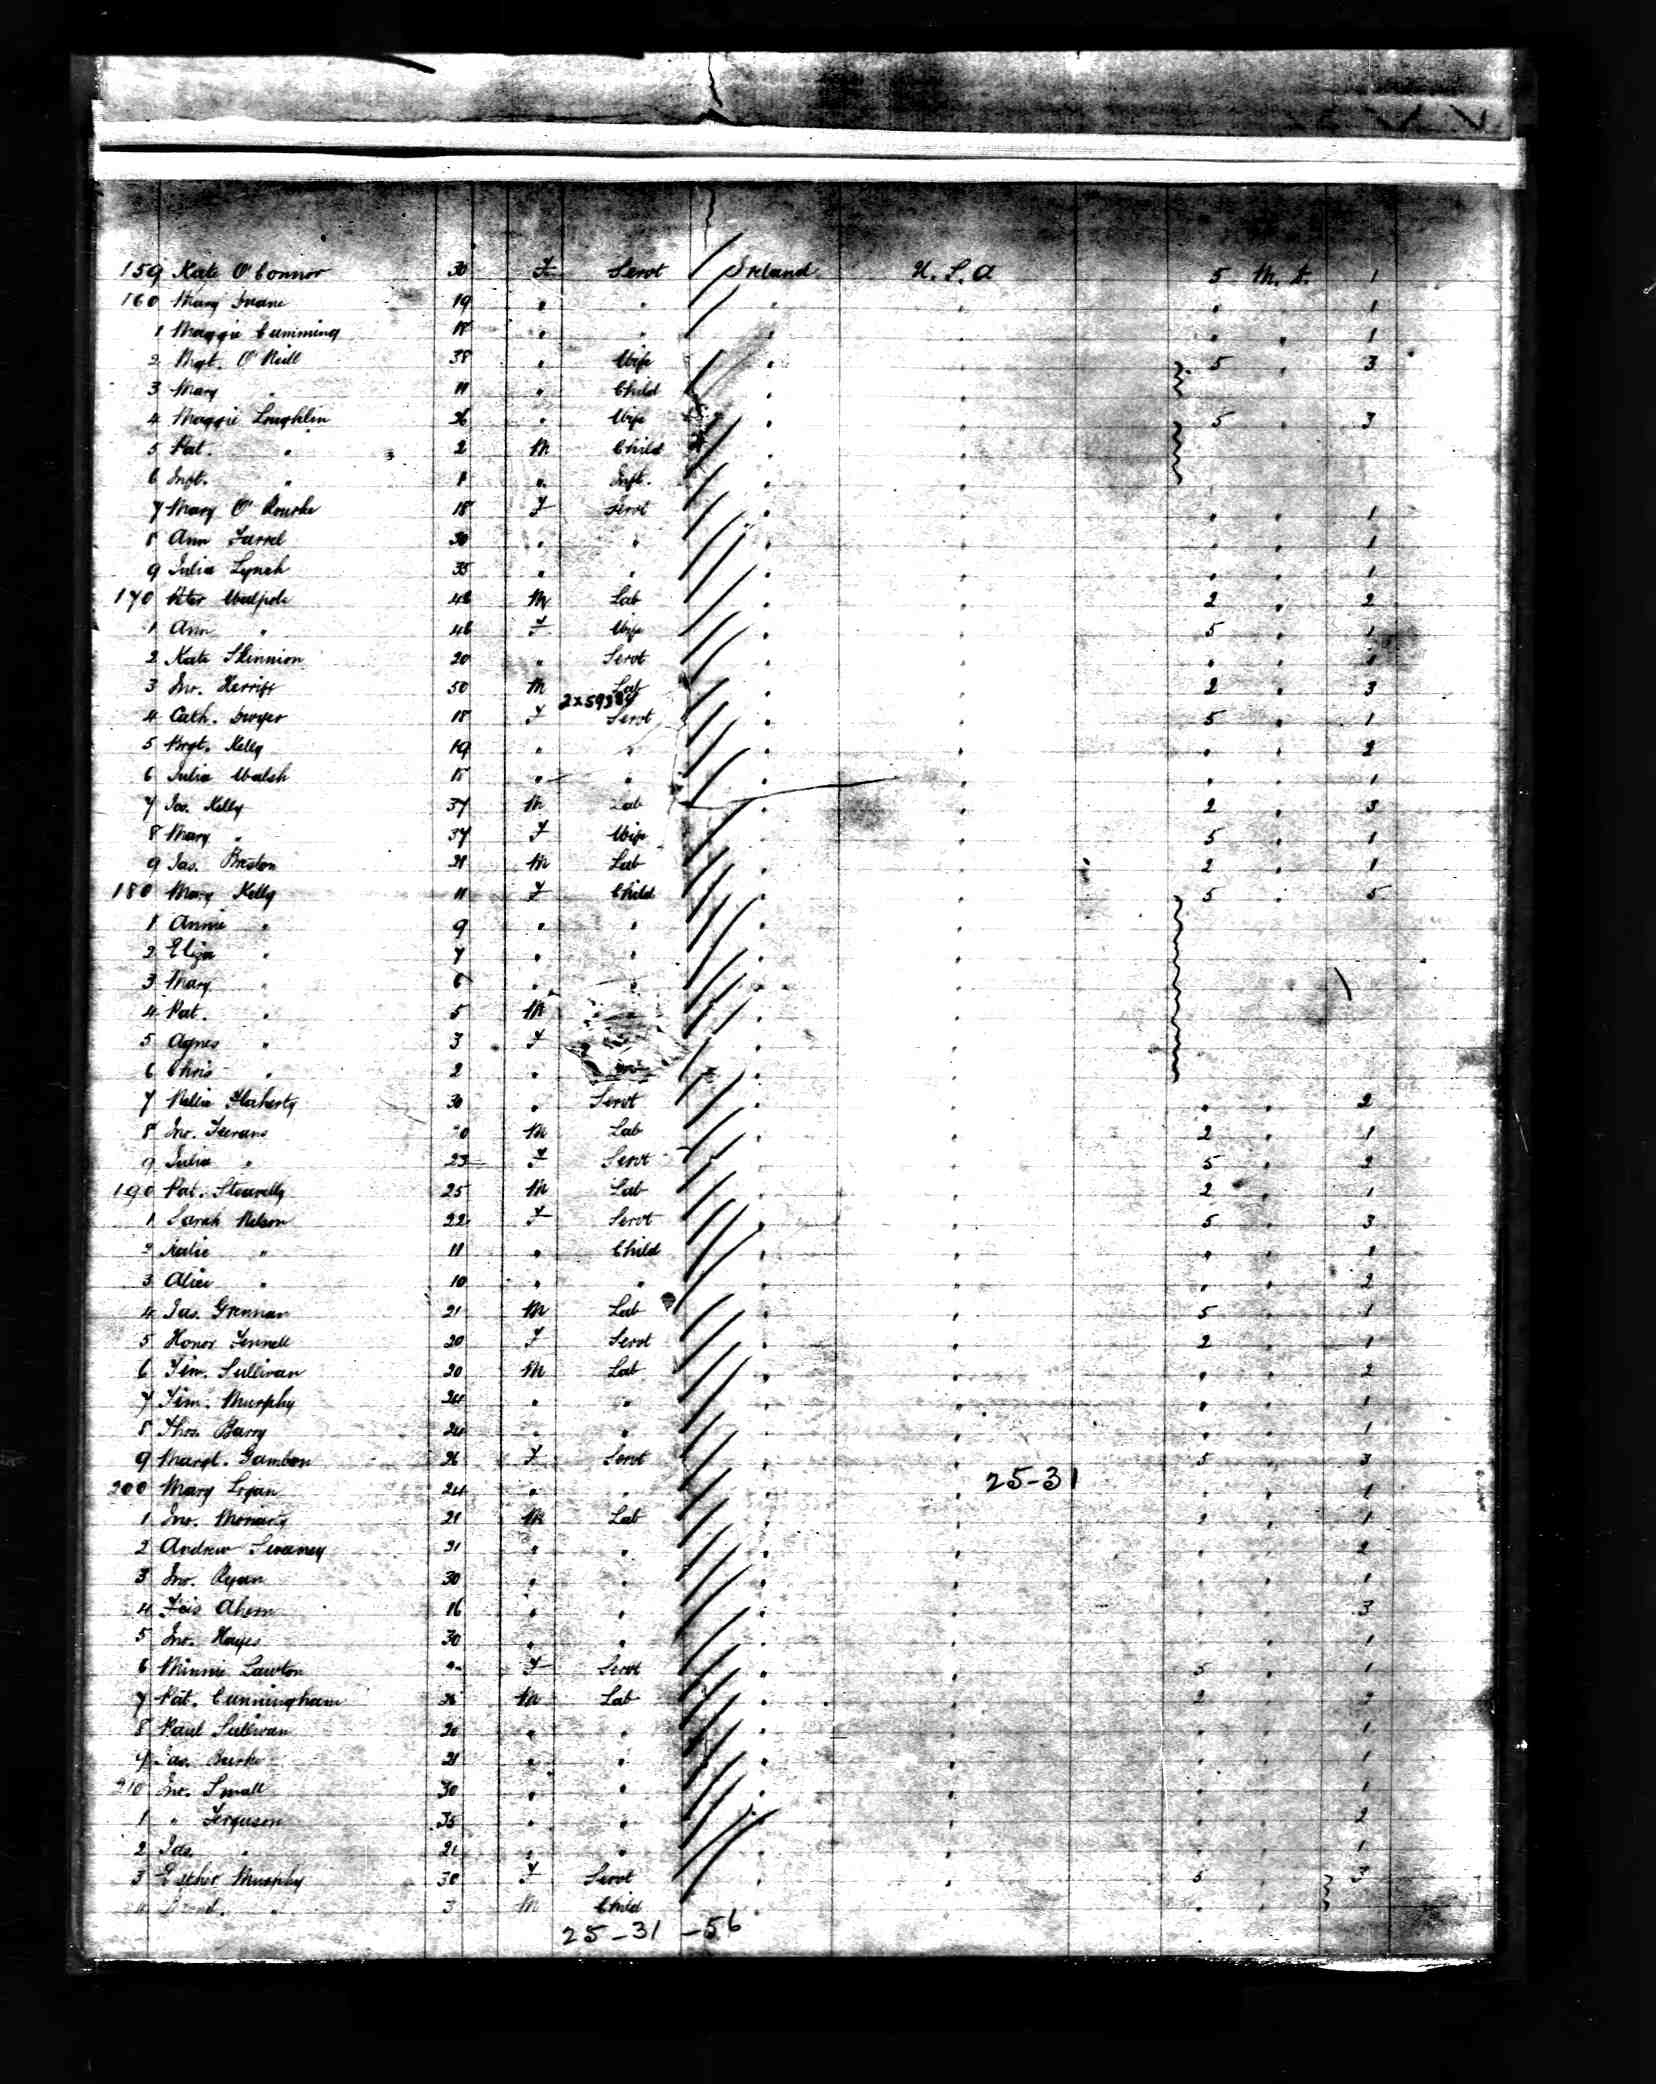 159 Kate O'Connor 30 F Servt Ireland U.S.A 5 M.D. 1
160 Mary Duane 19 " " " " " 1
1 Maggie Cummings 18 " " " " " 1
2 Mgt. O'Neill 38 " Wife " " 5 " 3
3 Mary " 11 " Child " "
4 Maggie Loughlin 26 " Wife " " 5 " 3
5 Pat. " 2 M Child " "
6 Inft. " 1 " Inft. " "
7 Mary O'Rourke 18 F Servt " " " " 1
8 Ann Farrel 30 " " " " " " 1
9 Julia Lynch 35 " " " " " " 1
170 Peter Walpole 46 M Lab " " 2 " 2
1 Ann " 46 F Wife " " 5 " 1
2 Kate Skinnion 20 " Servt " " " " 1
3 Jno. 50 M Lab " " 2 " 3
2x59384
4 Cath. Dwyer 18 F Servt " " 5 " 1
5 Brgt. Kelly 19 " " " " " " 2
6 Julia Walsh 18 " " " " " " 1
7 Jas. Kelly 37 M Lab " " 2 " 3
8 Mary " 37 F Wife " " 5 " 1
9 Jas. Breslon 21 M Lab " " 2 " 1
180 Mary Kelly 11 F Child " " 5 " 5
1 Annie " 9 " " " "
2 Eliza " 7 " " " "
3 Mary " 6 " " " "
4 Pat. " 5 M " "
5 Agnes " 3 F " "
6 Chris " 2 " " "
7 Nellie Flaherty 30 " Servt " " " " 2
8 Jno. M Lab " 2 " 1
9 Julia " 23 F Servt " 5 " 2
190 Pat. 25 M Lab " 2 " 1
1 Sarah Nelson 22 F Servt " " 5 " 3
2 Katie " 11 " Child " " " " 1
3 Alice " 10 " " " " " " 2
4 Jas. Grennan 21 M Lab " " 5 " 1
5 Honor Fennell 20 F Servt " " 2 " 1
6 Tim. Sullivan 20 M Lab " " " " 2
7 Tim. Murphy 24 " " " " " " 1
8 Thos Barry 24 " " " " " " 1
9 Margt. Gambon 26 F Servt " " 5 " 3
200 Mary Logan 24 " " " " " 1
25-31
1 Jno. Moriarty 21 M Lab " " 2 " 1
2 Andrew Sweeney 21 " " " " " " 2
3 Jno. Ryan 30 " " " " " " 1
4 Ahern 16 " " " " " " 3
5 Jno. Hayes 30 " " " " " 1
6 Minnie Lawton F Servt " " 5 " 1
7 Pat. Cunningham 26 M Lab " " 2 " 2
8 Paul Sullivan 20 " " " " " " 1
9 Jas. Burke 21 " " " " " " 1
210 Jno. Small 30 " " " " " " 1
1 " Ferguson 35 " " " " " " 2
2 Jas. " 21 " " " " " " 1
3 Esther Murphy 30 F Servt " " 5 " 3
4 " 3 M Child " "
25-31-56